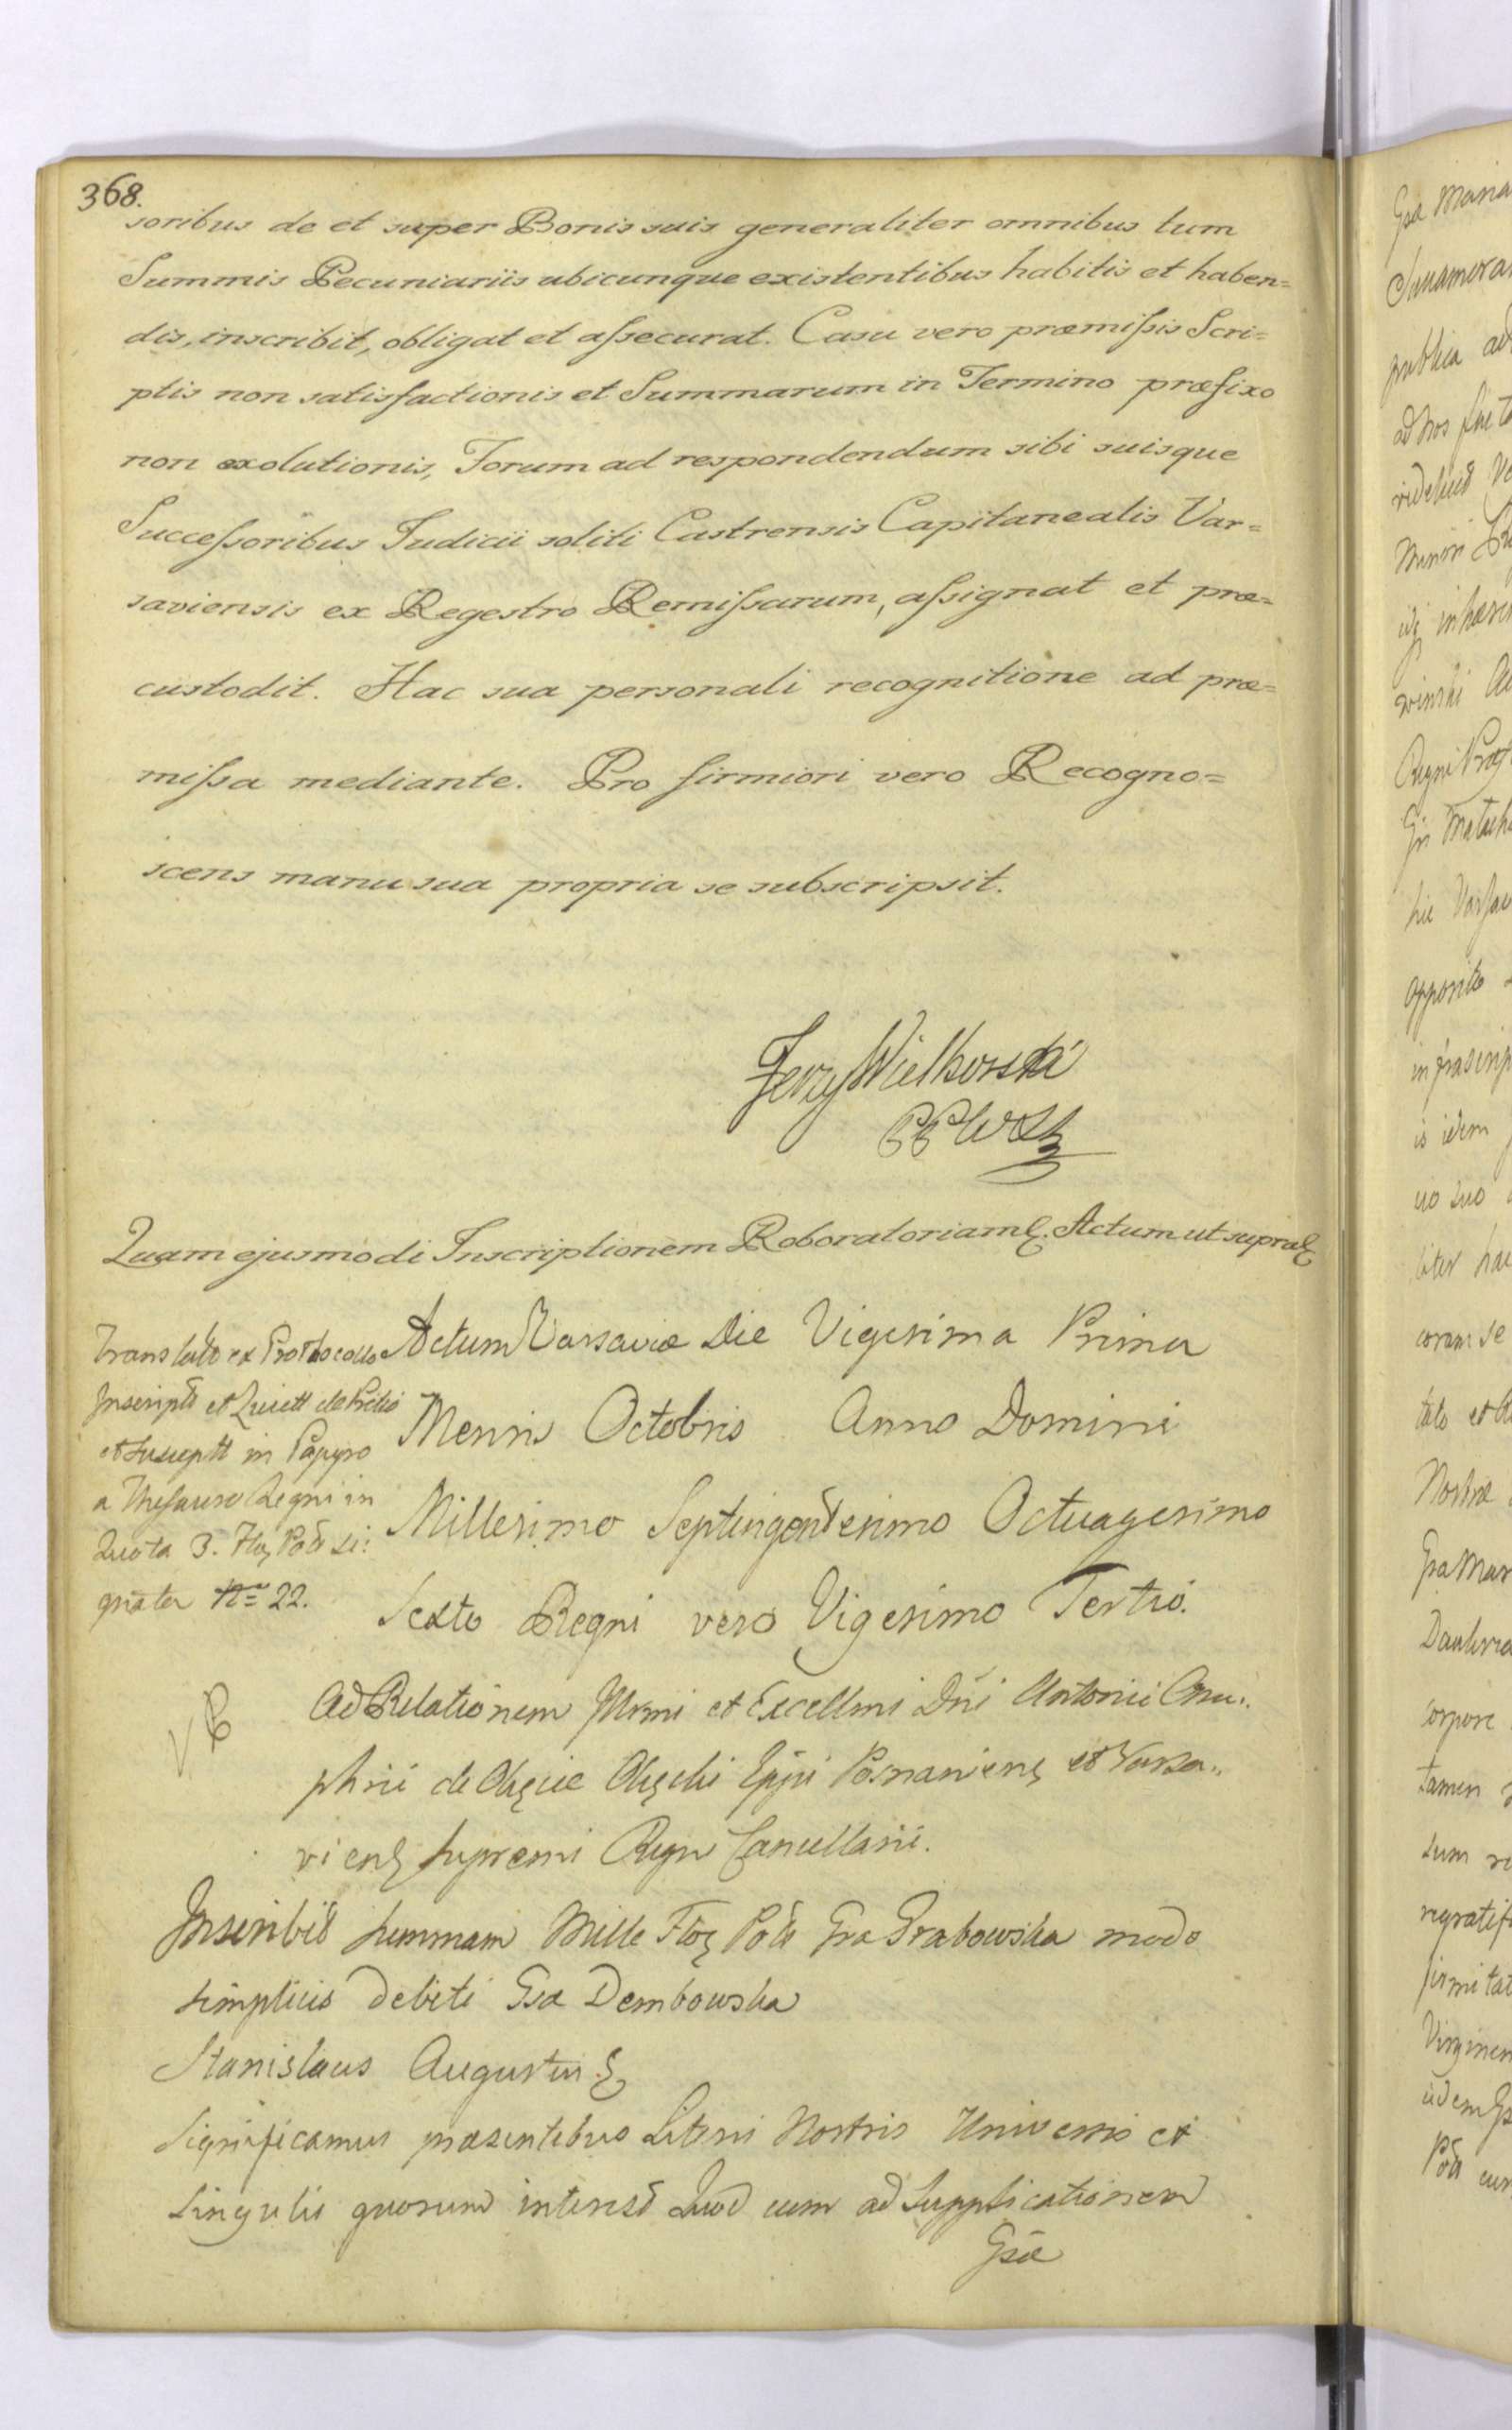 368.
soribus de et super Bonis suis generaliter omnibus tum
Summis Pecuniariis ubicunque existentibus habitis et haben=
dis, inscribit, obligat et assecurat. Casu vero præmissis Scri=
ptis non satisfactionis et Summarum in Termino præfixo
non exolutionis, Forum ad respondendum sibi suisque
Successoribus Judicii soliti Castrensis Capitanealis Var=
saviensis ex Regestro Remissarum, assignat et præ=
custodit. Hac sua personali recognitione ad præ=
missa mediante. Pro firmiori vero Recogno=
scens manu sua propria se subscripsit.
Jerzy Wielhorski
Quam ejusmodi Inscriptionem Roboratoriam &. Actum ut supra &
Translato ex Prothocollo
Inscript et Quiett
et Suscептt in Papyro
a Thesauro Regni in
Quota 3. Flor Pol si:
gnater No 22.
Actum Varsaviæ Die Vigesima Prima
Mensis Octobris Anno Domini
Millesimo Septingentesimo Octuagesimo
Sexto Regni vero Vigesimo Tertio.
Ad Relationem Illrmi et Excellmi Dni Antonii Onu:
phrii de Okęcie Okęcki Eppi Posnaniens et Varsa:
viens Supremi Regni Cancellarii.
Inscribit Summam Mille Flor Pol Gsa Grabowska modo
simplicis debiti Gsæ Dembowska
Stanislaus Augustus &
Significamus præsentibus Literis Nostris Universis et
Singulis quorum interest Quod cum ad Supplicationem
Gsæ